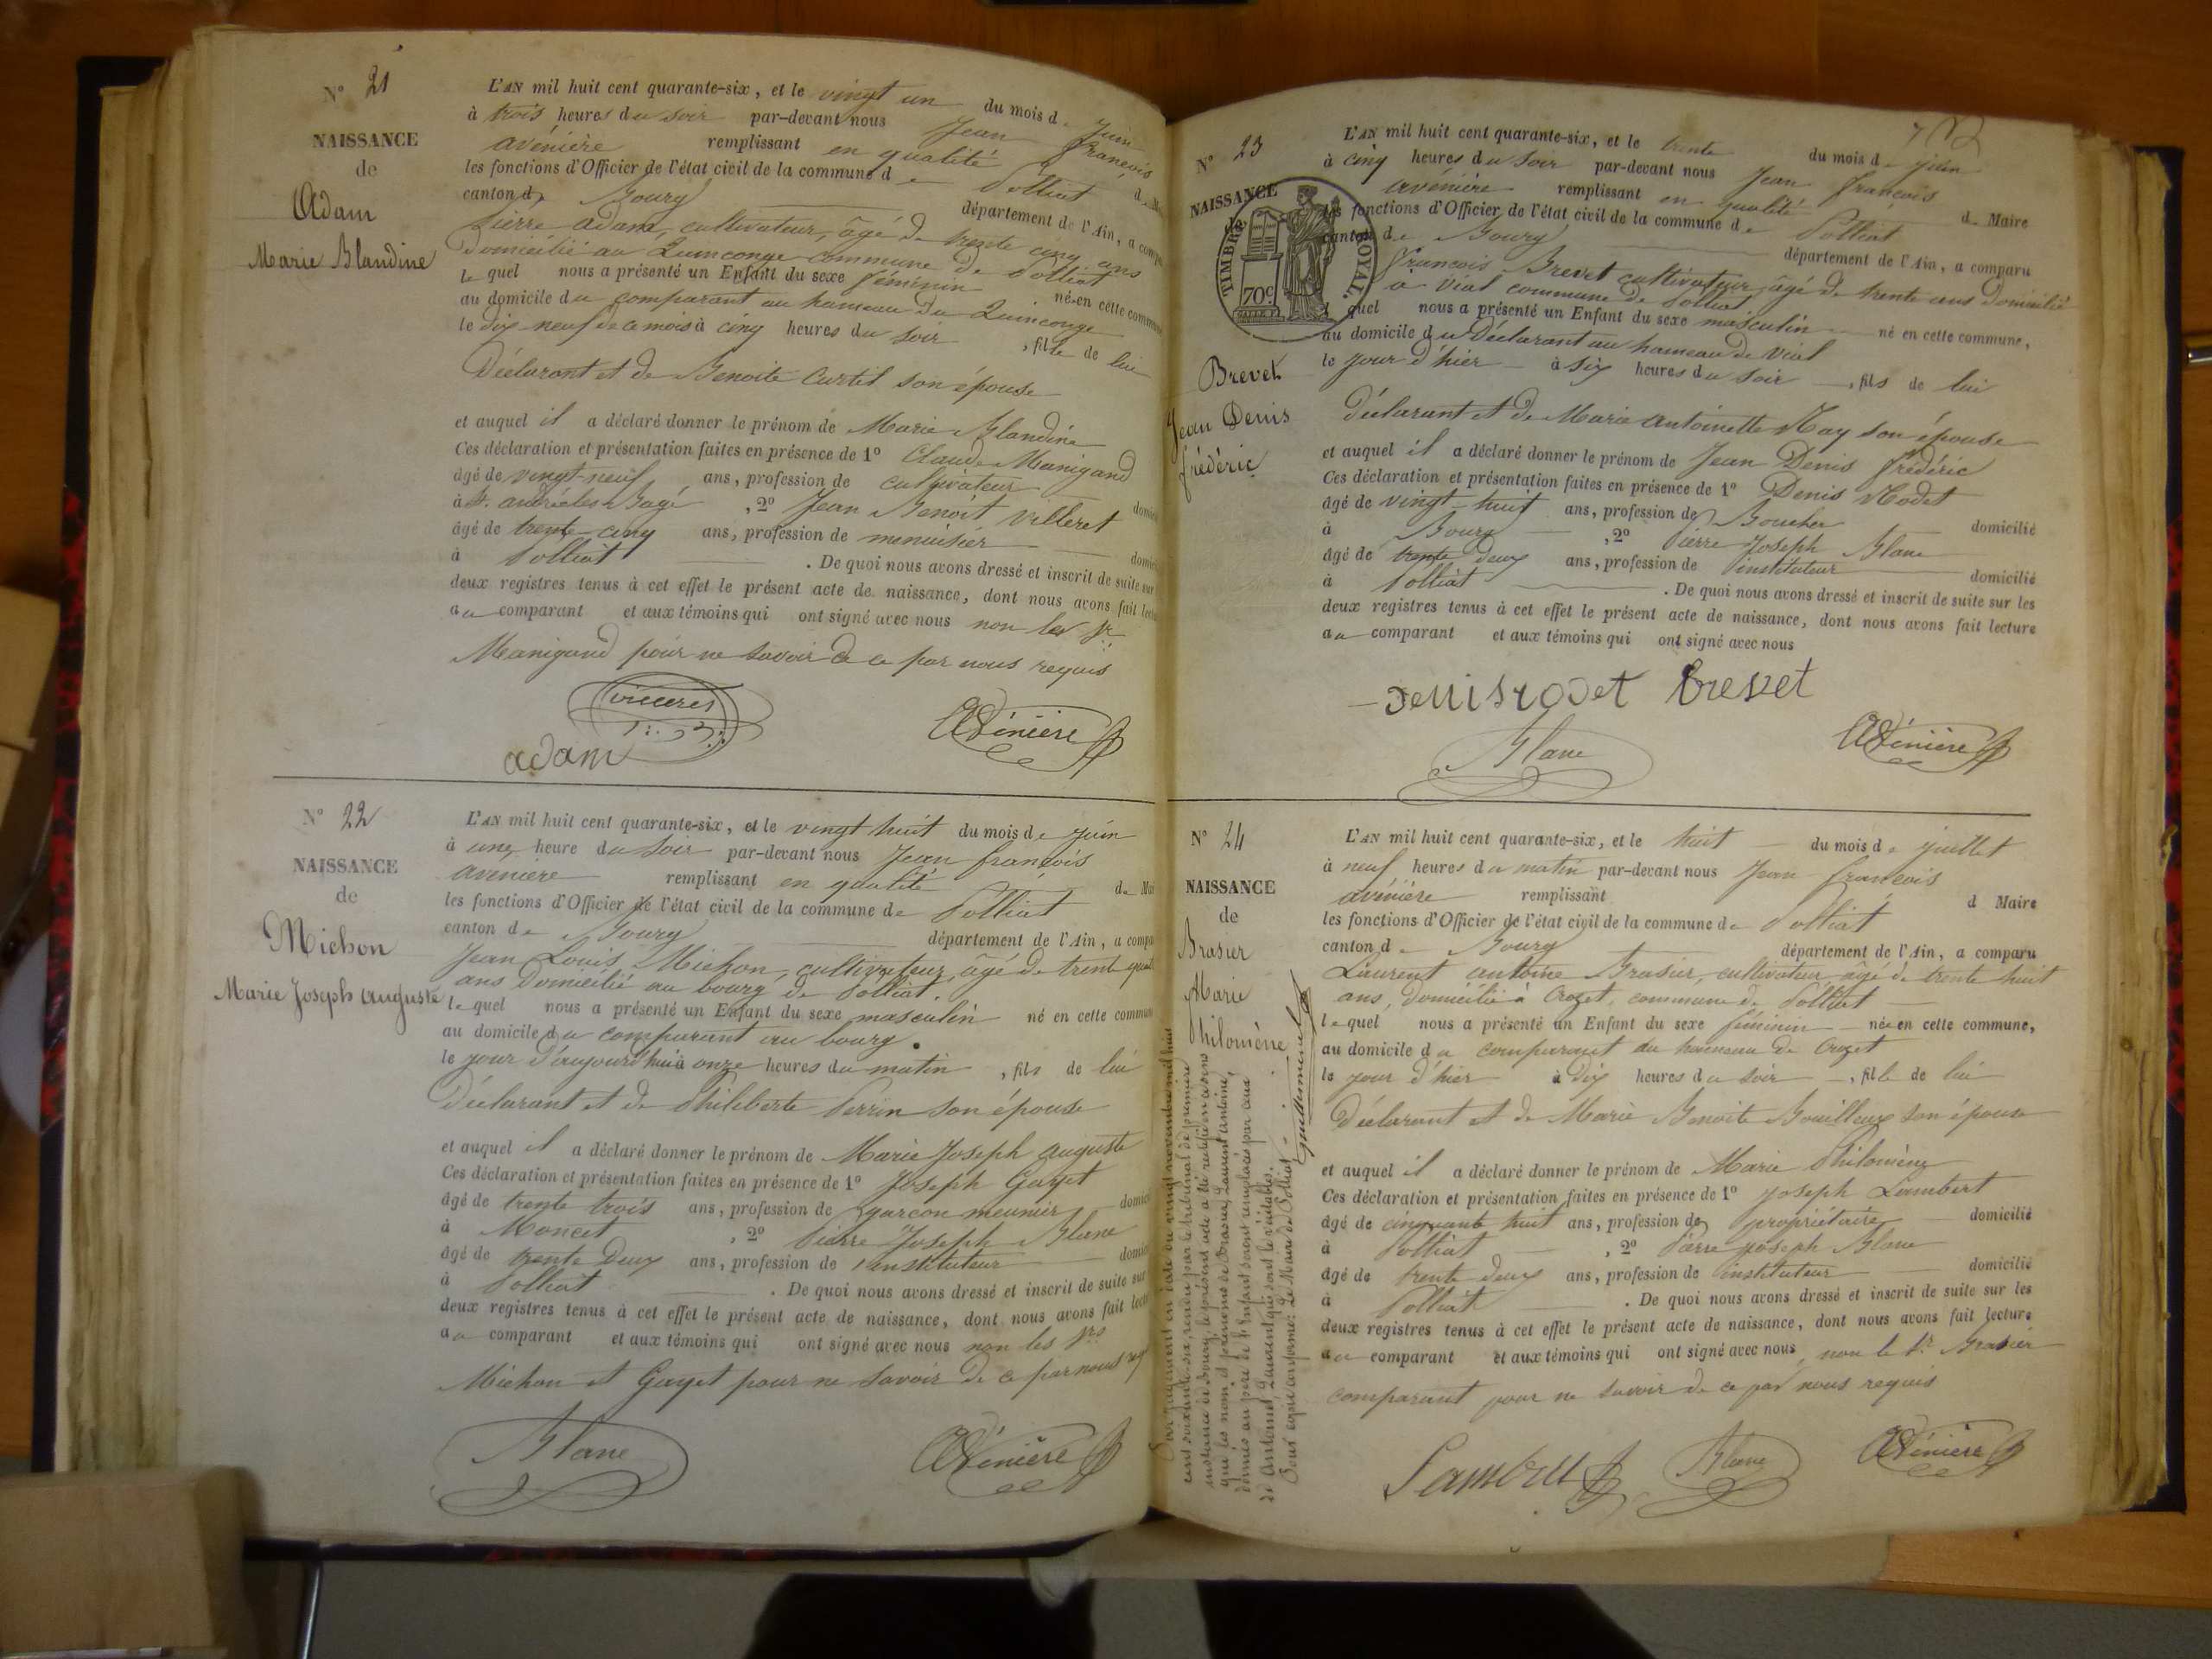 N° 21
NAISSANCE
de
Adam
Marie Blandine
L'AN mil huit cent quarante-six, et le vingt un du mois de Juin
à trois heures du soir par-devant nous Jean François
avénière remplissant en qualité de
les fonctions d'Officier de l'état civil de la commune de Polliat
canton de Bourg département de l'Ain, a comparu
Pierre adam, cultivateur, âgé de trente cinq ans
domicilié au Quinconge commune de Polliat
le quel nous a présenté un Enfant du sexe féminin née en cette commune
au domicile du comparant au hameau du Quinconge
le dix neuf de ce mois à cinq heures du soir, fille de lui
Déclarant et de Benoite Curtil son épouse
et auquel il a déclaré donner le prénom de Marie Blandine
Ces déclaration et présentation faites en présence de 1° Claude Manigand
âgé de vingt-neuf ans, profession de cultivateur
à St. andré les Bagé, 2° Jean Benoit Villeret
âgé de trente cinq ans, profession de menuisier
à Polliat. De quoi nous avons dressé et inscrit de suite sur
deux registres tenus à cet effet le présent acte de naissance, dont nous avons fait lecture
au comparant et aux témoins qui ont signé avec nous non le Sr.
Manigand pour ne savoir de ce par nous requis
adam
Avénière
N° 22
NAISSANCE
de
Michon
Marie Joseph auguste
L'AN mil huit cent quarante-six, et le vingt huit du mois de juin
à une heure du soir par-devant nous Jean françois
avénière remplissant en qualité de
les fonctions d'Officier de l'état civil de la commune de Polliat
canton de Bourg département de l'Ain, a comparu
Jean Louis Michon, cultivateur, âgé de trente quatre
ans domicilié au bourg de Polliat.
le quel nous a présenté un Enfant du sexe masculin né en cette commune
au domicile du comparant au bourg.
le jour d'aujourd'hui à onze heures du matin, fils de lui
Déclarant et de Philiberte Perrin son épouse
et auquel il a déclaré donner le prénom de Marie Joseph auguste
Ces déclaration et présentation faites en présence de 1° Joseph Gayet
âgé de trente trois ans, profession de garçon meunier
à Moncet, 2° Pierre Joseph Blanc
âgé de trente Deux ans, profession de instituteur
à Polliat. De quoi nous avons dressé et inscrit de suite sur
deux registres tenus à cet effet le présent acte de naissance, dont nous avons fait lecture
au comparant et aux témoins qui ont signé avec nous non les Srs
Michon et Gayet pour ne savoir de ce par nous requis
Blanc
Avénière
N° 23
NAISSANCE
de
TIMBRE ROYAL.
70c.
Brevet
Jean Denis
frédéric
L'AN mil huit cent quarante-six, et le trente du mois de juin
à cinq heures du soir par-devant nous Jean françois
avénière remplissant en qualité de Maire
les fonctions d'Officier de l'état civil de la commune de Polliat
canton de Bourg département de l'Ain, a comparu
françois Brevet cultivateur, âgé de trente ans domicilié
à vial commune de Polliat
le quel nous a présenté un Enfant du sexe masculin né en cette commune,
au domicile du Déclarant au hameau de vial
le jour d'hier à six heures du soir, fils de lui
Déclarant et de Marie antoinette Nay son épouse
et auquel il a déclaré donner le prénom de Jean Denis frédéric
Ces déclaration et présentation faites en présence de 1° Denis Rodet
âgé de vingt-huit ans, profession de Boucher
à Bourg domicilié, 2° Pierre Joseph Blanc
âgé de trente deux ans, profession de instituteur domicilié
à Polliat. De quoi nous avons dressé et inscrit de suite sur les
deux registres tenus à cet effet le présent acte de naissance, dont nous avons fait lecture
au comparant et aux témoins qui ont signé avec nous
Denis rodet brevet
Blanc
Avénière
N° 24
NAISSANCE
de
Brasier
Marie
Philomène
L'AN mil huit cent quarante-six, et le huit du mois de juillet
à neuf heures du matin par-devant nous Jean françois
avénière remplissant d Maire
les fonctions d'Officier de l'état civil de la commune de Polliat
canton de Bourg département de l'Ain, a comparu
Laurent antoine Brasier, cultivateur, âgé de trente huit
ans, domicilié à Crozet, commune de Polliat
le quel nous a présenté un Enfant du sexe féminin née en cette commune,
au domicile du comparant au hameau de Crozet
le jour d'hier à dix heures du soir, fille de lui
Déclarant et de Marie Benoite Bouilloux son épouse
et auquel il a déclaré donner le prénom de Marie Philomène
Ces déclaration et présentation faites en présence de 1° Joseph Lambert
âgé de cinquante huit ans, profession de propriétaire domicilié
à Polliat, 2° Pierre joseph Blanc
âgé de trente deux ans, profession de instituteur domicilié
à Polliat. De quoi nous avons dressé et inscrit de suite sur les
deux registres tenus à cet effet le présent acte de naissance, dont nous avons fait lecture
au comparant et aux témoins qui ont signé avec nous, non le Sr. Brasier
comparant pour ne savoir de ce par nous requis
Lambert
Blanc
Avénière
Par jugement en date du vingt novembre mil huit
cent soixante-six, rendu par le tribunal de première
instance de Bourg, le présent acte a été rectifié en ce sens
que les nom et prénoms de Brasier, Laurent antoine,
donnés au père de l'Enfant seront remplacés par ceux
de antoine Laurent qui sont les véritables.
Pour copie conforme: Le Maire de Polliat